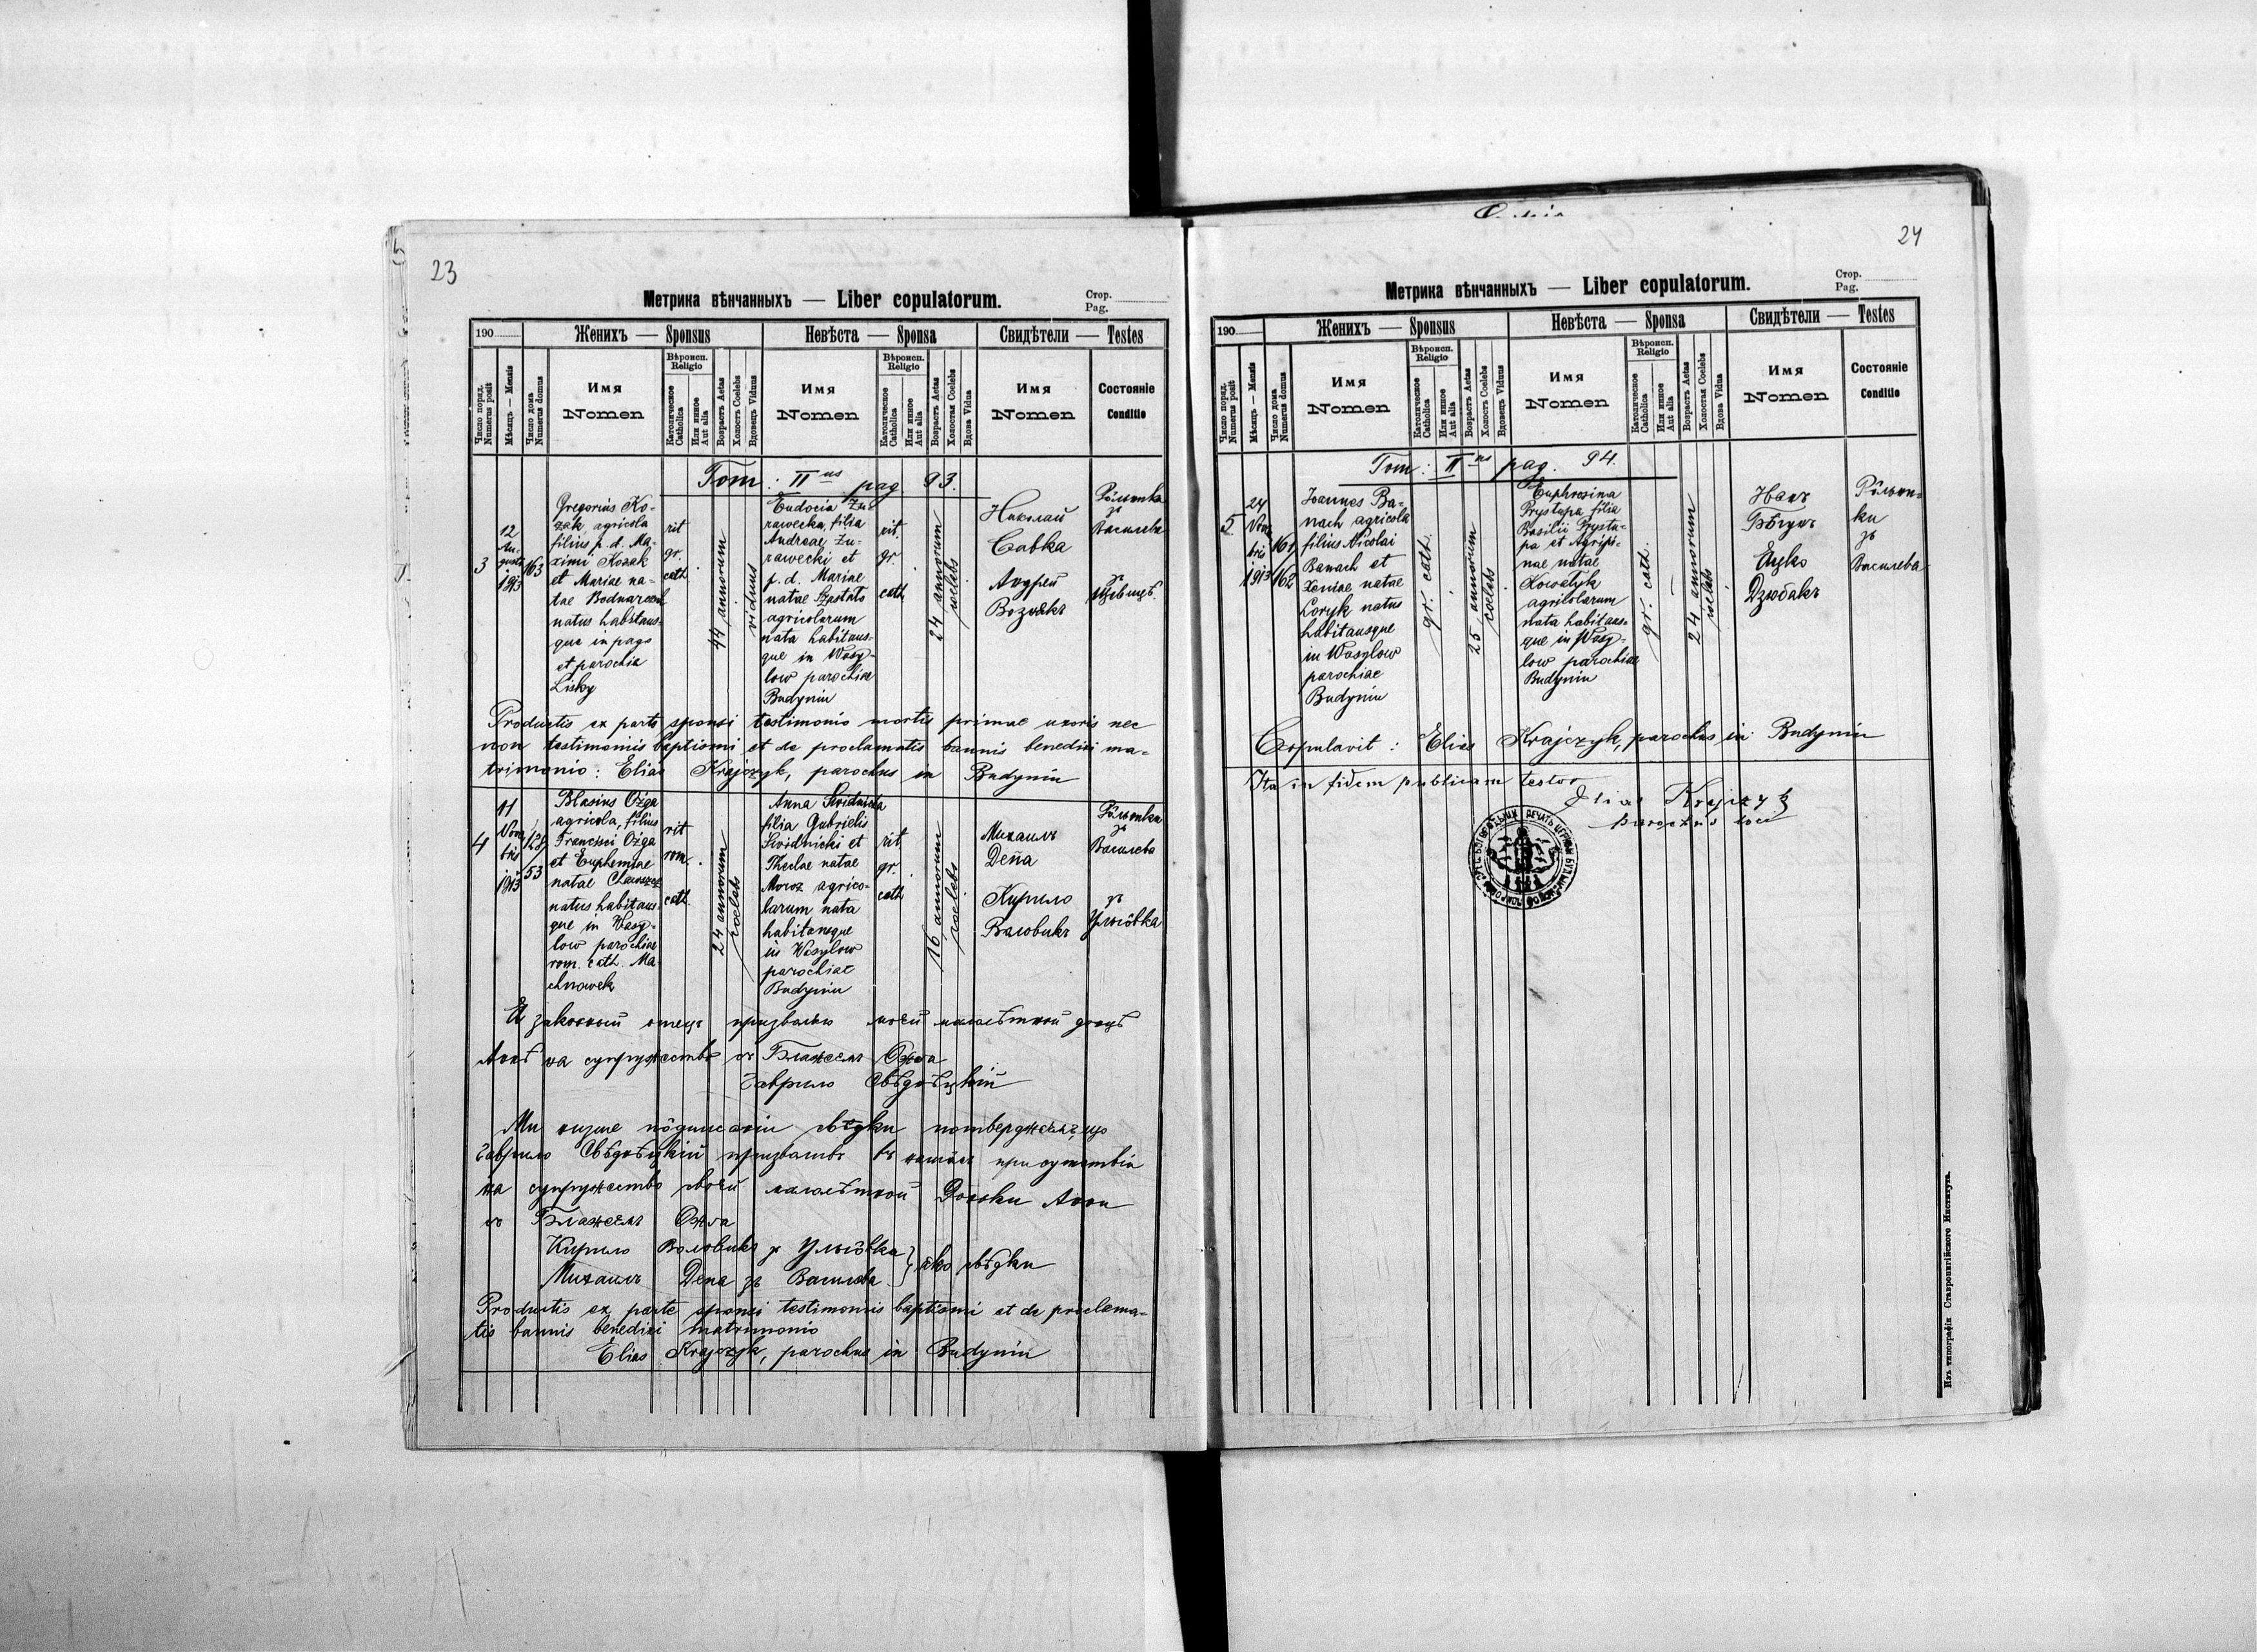 23
Метрика вѣнчанныхъ — Liber copulatorum.
Стор.
Pag.
190
Женихъ — Sponsus
Невѣста — Sponsa
Свидѣтели — Testes
Число поряд.
Numerus posit
Мѣсяць — Mensis
Число дома
Numerus domus
Имя
Nomen
Вѣроисп.
Religio
Католическое
Catholica
Или инное
Aut alia
Возрастъ Aetas
Холостъ Coelebs
Вдовець Viduus
Имя
Nomen
Вѣроисп.
Religio
Католическое
Catholica
Или инное
Aut alia
Возрастъ Aetas
Холостая Coelebs
Вдова Vidua
Имя
Nomen
Состояніе
Conditio
Tom: II us pag. 93.
3
12
Au-
gusti
1913
163
Gregorius Ko-
zak agricola
filius p. d. Ma-
ximi Kozak
et Mariae na-
tae Bodnarczuk
natus habitans-
que in pago
et parochia
Lisky
rit
gr.
cath
44 annorum
viduus
Eudocia Żu-
rawecka, filia
Andreae Żu-
rawecki et
p. d. Mariae
natae Szostato
agricolarum
nata habitans-
que in Wasy-
low parochiae
Budynin
rit.
gr.
cath
24 annorum
coelebs
Николай
Савка
Андрей
Вознякъ
Рôльника
зъ
Василева
зъ
Productis ex parte sponsi testimonio mortis primae uxoris nec
non testimoniis baptismi et de proclamatis bannis benedixi ma-
trimonio: Elias Krajczyk, parochus in Budynin
4
11
Novem
bris
1913
128/
53
Blasius Ożga
agricola, filius
Francisci Ożga
et Euphemiae
natae
natus habitans
que in Wasy-
low parochiae
rom. cath. Ma
chnowek
rit
rom.
cath
24 annorum
coelebs
Anna Swidnicka
filia Gabrielis
Swidnicki et
Theclae natae
Moroz agrico-
larum nata
habitansque
in Wasylow
parochiae
Budynin
rit
gr.
cath
16 annorum
coelebs
Михаилъ
Депа
Кирило
Валовикъ
Рôльника
зъ
Василева
зъ
Угнôвка
Я законный отець призваляю моєй малолѣтной доцѣ
Аннѣ на супружество съ Блажеємъ Ожґа
Гаврило Свѣднѣцкій
Ми низше пôдписаніи свѣдки потверджаемъ, що
Гаврило Свѣднѣцкій призваливъ въ нашôмъ присутствіи
на супружество своєй малолѣтной Доньки Анни
съ Блажеємъ Ожґа
Кирило Валовикъ зъ Угнôвка } яко свѣдки
Михаилъ Депа зъ Василева
Productis ex parte sponsi testimoniis baptismi et de proclama-
tis bannis benedixi matrimonio
Elias Krajczyk, parochus in Budynin
24
Метрика вѣнчанныхъ — Liber copulatorum.
Стор.
Pag.
190
Женихъ — Sponsus
Невѣста — Sponsa
Свидѣтели — Testes
Число поряд.
Numerus posit
Мѣсяць — Mensis
Число дома
Numerus domus
Имя
Nomen
Вѣроисп.
Religio
Католическое
Catholica
Или инное
Aut alia
Возрастъ Aetas
Холостъ Coelebs
Вдовець Viduus
Имя
Nomen
Вѣроисп.
Religio
Католическое
Catholica
Или инное
Aut alia
Возрастъ Aetas
Холостая Coelebs
Вдова Vidua
Имя
Nomen
Состояніе
Conditio
Tom: II us pag. 94.
5
24
Novem
bris
1913
161/
162
Joannes Ba-
nach agricola
filius Nicolai
Banach et
Xeniae natae
Loryk natus
habitansque
in Wasylow
parochiae
Budynin
gr. cath.
25 annorum
coelebs
Euphrosina
Prystupa filia
Basilii Prystu-
pa et Agripi-
nae natae
Kowalyk
agricolarum
nata habitans-
que in Wasy-
low parochiae
Budynin
gr. cath.
24 annorum
coelebs
Иванъ
Бѣгунъ
Яцко
Дзюбакъ
Рôльни-
ки
зъ
Василева
Copulavit: Elias Krajczyk, parochus in Budynin
Ita in fidem publicam testor
Elias Krajczyk
Parochus loci
Изъ типографіи Ставропигійского Института.